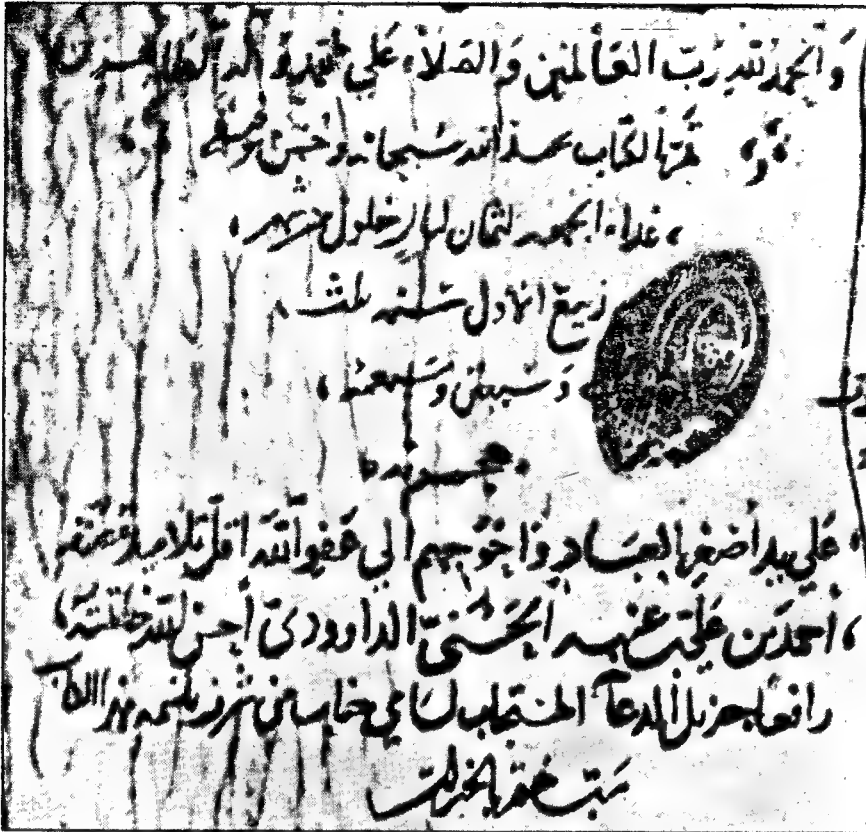 وَالحمد لله رَبّ العَالمين وَالصَلاة عَلي محمد وآله الطاهرين
تمّ الكتاب بحمد الله سبحانه وحُسْن توفيقه
غداة الجمعه لثمان ليال خلون من شهر
رَبيع الاول سَنه ثلث
وَسبعين وسَبعمئه
عَلي يد أضعف العباد وَاحوَجهم الي عَفو الله اقل تلاميذ
أحمد بن عَلي بن عنبه الحَسَنيّ الداوودي أحسَن الله
رافعًا جزيل الدعآ المستجاب لسَامي جناب من الكتاب